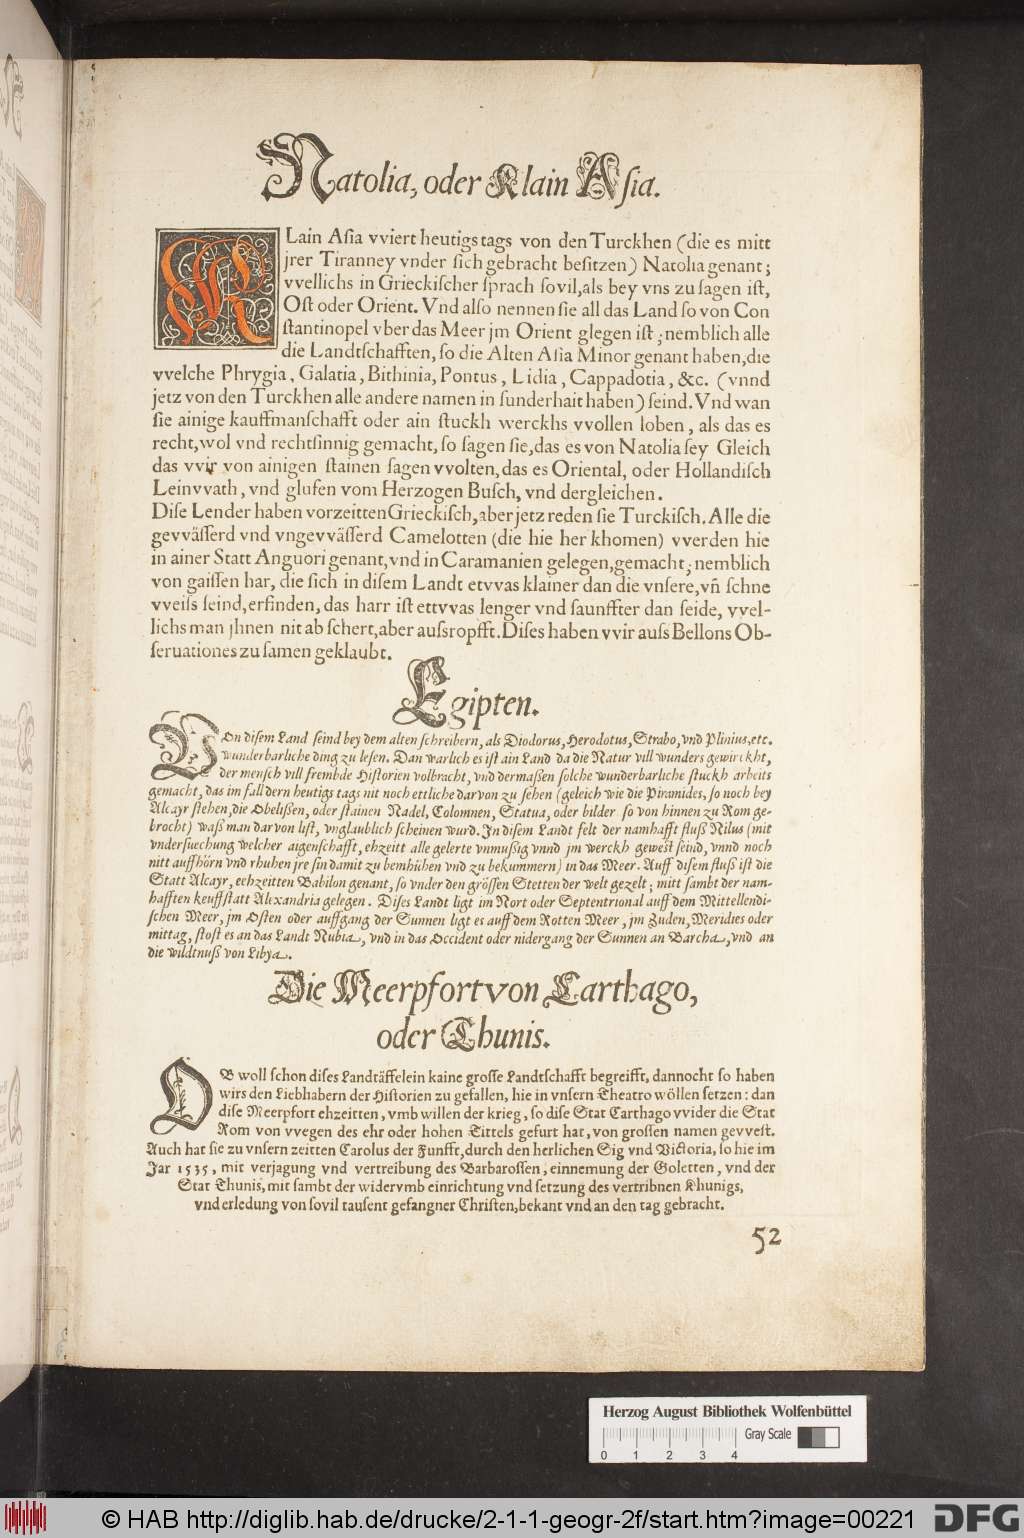 Natolia, oder Klain Asia.
KLain Asia vviert heutigs tags von den Turckhen (die es mitt
jrer Tiranney vnder sich gebracht besitzen) Natolia genant;
vvellichs in Grieckischer sprach sovil, als bey vns zu sagen ist,
Ost oder Orient. Vnd also nennen sie all das Land so von Con
stantinopel vber das Meer jm Orient glegen ist; nemblich alle
die Landtschafften, so die Alten Asia Minor genant haben, die
vvelche Phrygia, Galatia, Bithinia, Pontus, Lidia, Cappadotia, &c. (vnnd
jetz von den Turckhen alle andere namen in sunderhait haben) seind. Vnd wan
sie ainige kauffmanschafft oder ain stuckh werckhs vvollen loben, als das es
recht, wol vnd rechtsinnig gemacht, so sagen sie, das es von Natolia sey Gleich
das vvir von ainigen stainen sagen vvolten, das es Oriental, oder Hollandisch
Leinvvath, vnd glufen vom Herzogen Busch, vnd dergleichen.
Dise Lender haben vorzeitten Grieckisch, aber jetz reden sie Turckisch. Alle die
gevvässerd vnd vngevvässerd Camelotten (die hie her khomen) vverden hie
in ainer Statt Anguori genant, vnd in Caramanien gelegen, gemacht; nemblich
von gaissen har, die sich in disem Landt etvvas klainer dan die vnsere, vñ schne
vveiss seind, erfinden, das harr ist ettvvas lenger vnd saunffter dan seide, vvel-
lichs man jhnen nit ab schert, aber aussropfft. Dises haben vvir auss Bellons Ob-
seruationes zu samen geklaubt.
Egipten.
VOn disem Land seind bey dem alten schreibern, als Diodorus, Herodotus, Strabo, vnd Plinius, etc.
wunderbarliche ding zu lesen. Dan warlich es ist ain Land da die Natur vill wunders gewirckht,
der mensch vill frembde Historien volbracht, vnd dermaßen solche wunderbarliche stuckh arbeits
gemacht, das im fall dern heutigs tags nit noch ettliche darvon zu sehen (geleich wie die Piramides, so noch bey
Alcayr stehen, die Obelißen, oder stainen Nadel, Colomnen, Statua, oder bilder so von hinnen zu Rom ge-
brocht) waß man darvon list, vnglaublich scheinen wurd. In disem Landt felt der namhafft fluß Nilus (mit
vndersuechung welcher aigenschafft, ehzeitt alle gelerte vnmußig vnnd jm werckh gewest seind, vnnd noch
nitt auffhörn vnd rhuhen jre sin damit zu bemhühen vnd zu bekummern) in das Meer. Auff disem fluß ist die
Statt Alcayr, eehzeitten Babilon genant, so vnder den grössen Stetten der welt gezelt; mitt sambt der nam-
hafften keuffstatt Alexandria gelegen. Dises Landt ligt im Nort oder Septentrional auff dem Mittellendi-
schen Meer, jm Osten oder auffgang der Sunnen ligt es auff dem Rotten Meer, jm Zuden, Meridies oder
mittag, stost es an das Landt Nubia, vnd in das Occident oder nidergang der Sunnen an Barcha, vnd an
die wildtnuß von Libya.
Die Meerpfort von Carthago,
oder Thunis.
OB woll schon dises Landtäffelein kaine grosse Landtschafft begreifft, dannocht so haben
wirs den Liebhabern der Historien zu gefallen, hie in vnsern Theatro wöllen setzen: dan
dise Meerpfort ehzeitten, vmb willen der krieg, so dise Stat Carthago vvider die Stat
Rom von vvegen des ehr oder hohen Tittels gefurt hat, von grossen namen gevvest.
Auch hat sie zu vnsern zeitten Carolus der Funfft, durch den herlichen Sig vnd Victoria, so hie im
Jar 1535, mit verjagung vnd vertreibung des Barbarossen, einnemung der Goletten, vnd der
Stat Thunis, mit sambt der widervmb einrichtung vnd setzung des vertribnen Khunigs,
vnd erledung von sovil tausent gefangner Christen, bekant vnd an den tag gebracht.
52
Herzog August Bibliothek Wolfenbüttel
Gray Scale
0 1 2 3 4
© HAB http://diglib.hab.de/drucke/2-1-1-geogr-2f/start.htm?image=00221
DFG